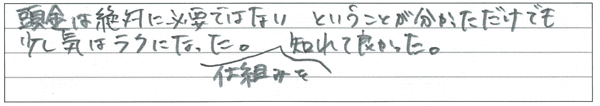 頭金は絶対に必要ではない ということが分かっただけでも
少し気はラクになった。 知れて良かった。
仕組みを